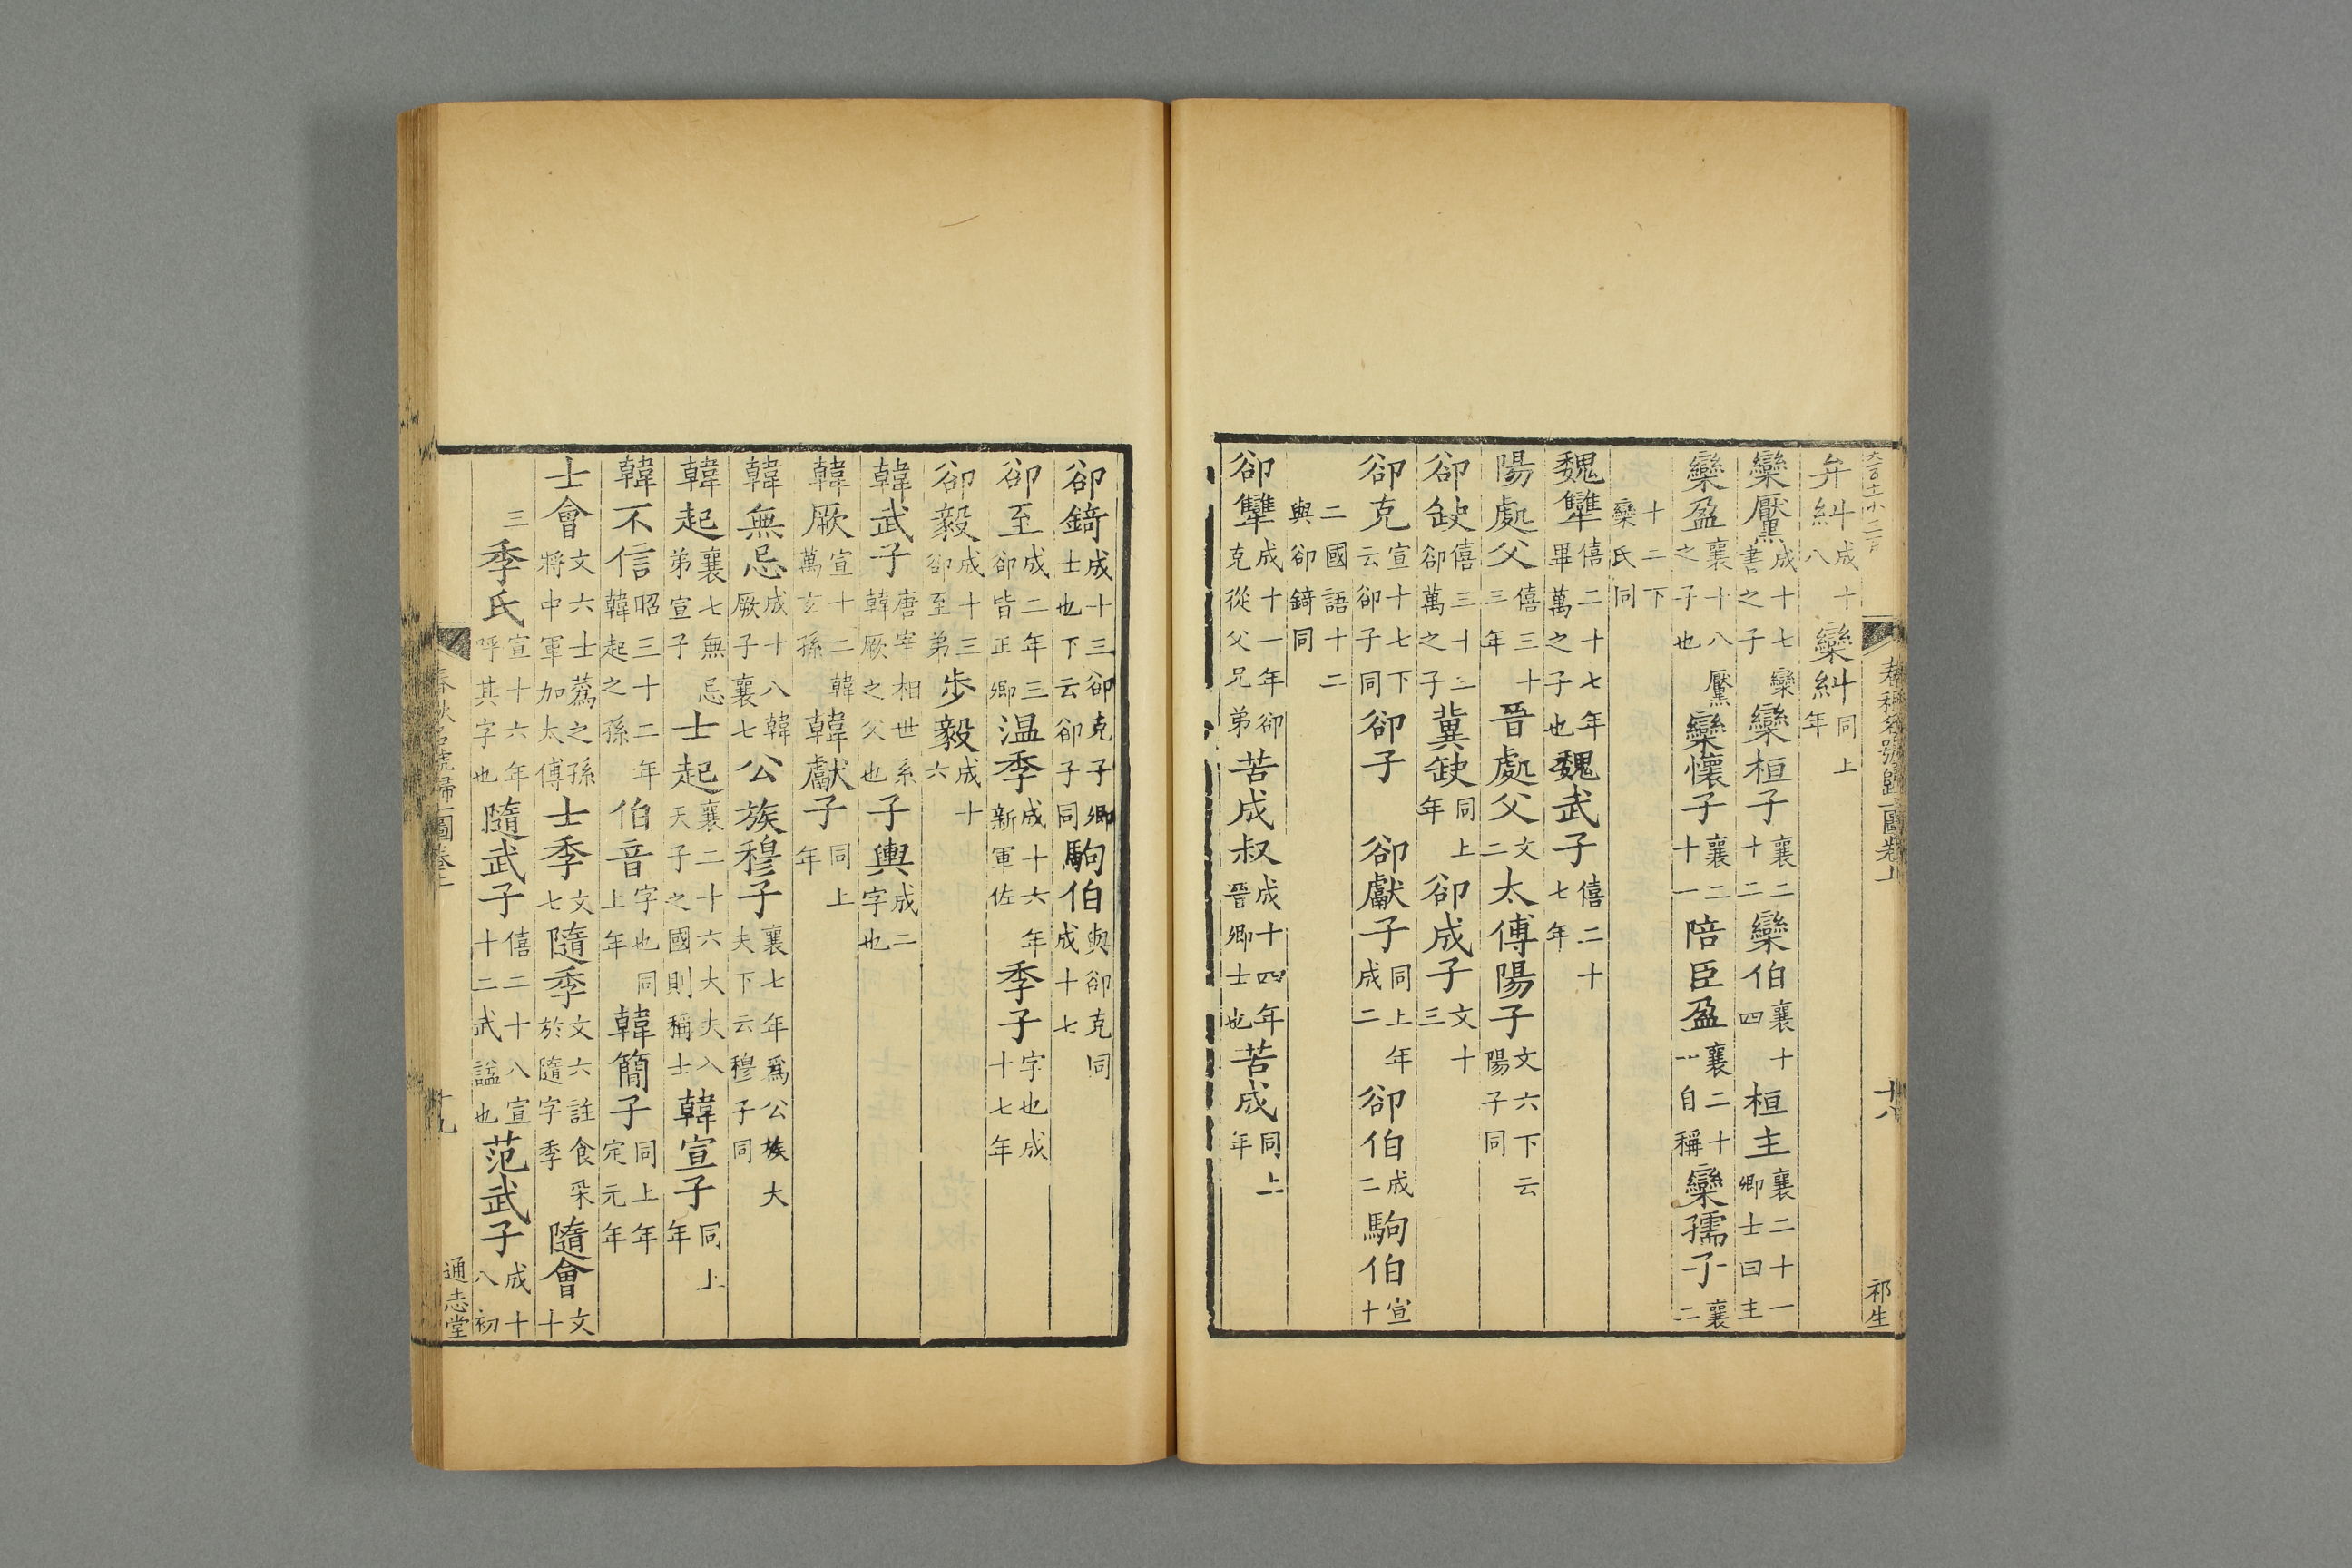 弁糾成十八欒糾同上年
欒黶成十七欒書之子欒桓子襄二十二欒伯襄十四桓主襄二十一卿士曰主
欒盈襄十八黶之子也欒懷子襄二十一陪臣盈襄二十一自稱欒孺子襄二
十二下欒氏同
魏犨僖二十七年畢萬之子也魏武子僖二十七年
陽處父僖三十三年晉處父文二太傅陽子文六下云陽子同
郤缺僖三十三郤萬之子冀缺同上年郤成子文十三
郤克宣十七下云郤子同郤子　郤獻子同上年成二郤伯成二駒伯宣十
二國語十二與郤錡同
郤犨成十一年郤克從父兄弟苦成叔成十四年晉卿士也苦成同上年
春秋名號歸一圖卷上
十八
祁生
郤錡成十三郤克子卿士也下云郤子同駒伯與郤克同成十七
郤至成二年三郤皆正卿温季成十六年新軍佐季子字也成十七年
郤毅成十三郤至弟步毅成十六
韓武子唐宰相世系韓厥之父也子輿成二字也
韓厥宣十二韓萬玄孫韓獻子同上年
韓無忌成十八韓厥子襄七公族穆子襄七年爲公族大夫下云穆子同
韓起襄七無忌弟宣子士起襄二十六大夫入天子之國則稱士韓宣子同上年
韓不信昭三十二年韓起之孫伯音字也同上年韓簡子同上年定元年
士會文六士蒍之孫將中軍加太傅士季文七隨季文六註食采於隨字季隨會文十
三季氏宣十六年呼其字也隨武子僖二十八宣十二武謚也范武子成十八初
春秋名號歸一圖卷上
十九
通志堂